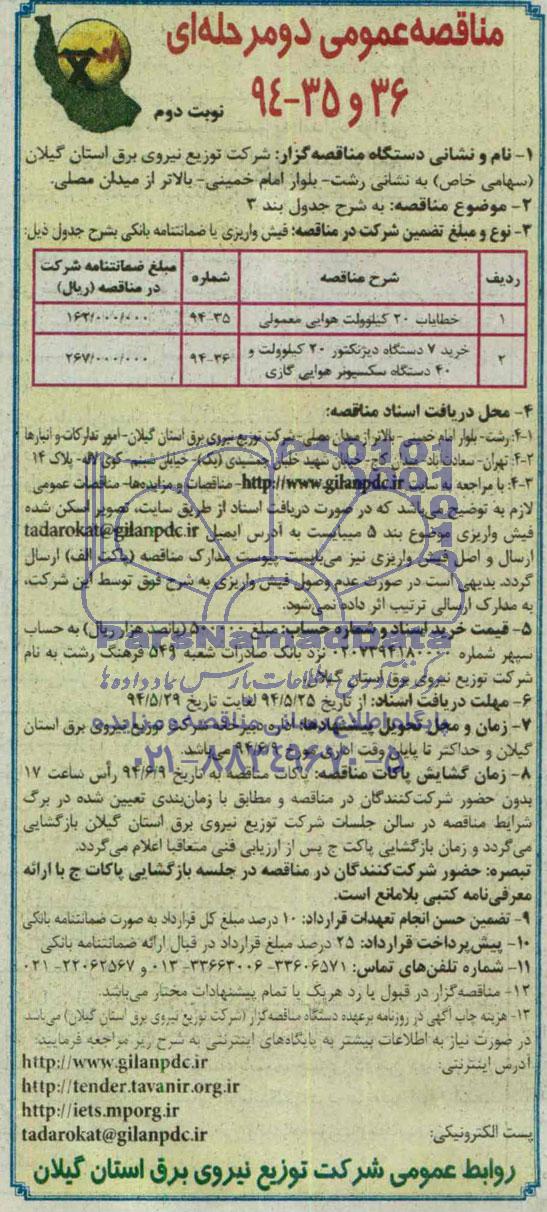 مناقصه عمومی دومرحله‌ای
۳۶ و ۳۵-۹۴
نوبت دوم
۱- نام و نشانی دستگاه مناقصه‌گزار: شرکت توزیع نیروی برق استان گیلان
(سهامی خاص) به نشانی رشت- بلوار امام خمینی- بالاتر از میدان مصلی.
۲- موضوع مناقصه: به شرح جدول بند ۳
۳- نوع و مبلغ تضمین شرکت در مناقصه: فیش واریزی یا ضمانتنامه بانکی بشرح جدول ذیل:
ردیف شرح مناقصه شماره مبلغ ضمانتنامه شرکت
در مناقصه (ریال)
۱ خطایاب ۲۰ کیلوولت هوایی معمولی ۹۴-۳۵ ۱۶۲/۰۰۰/۰۰۰
۲ خرید ۷ دستگاه دیژنکتور ۲۰ کیلوولت و ۹۴-۳۶ ۲۶۷/۰۰۰/۰۰۰
۴۰ دستگاه سکسیونر هوایی گازی
۴- محل دریافت اسناد مناقصه:
۴-۱: رشت- بلوار امام خمینی- بالاتر از میدان مصلی- شرکت توزیع نیروی برق استان گیلان- امور تدارکات و انبارها
۴-۲: تهران- سعادت آباد- میدان کاج- خیابان شهید خلیل جمشیدی (یک)- خیابان هشتم- کوی لاله- پلاک ۱۴
۴-۳: با مراجعه به سایت http://www.gilanpdc.ir - مناقصات و مزایده‌ها- مناقصات عمومی
لازم به توضیح می‌باشد که در صورت دریافت اسناد از طریق سایت، تصویر اسکن شده
فیش واریزی موضوع بند ۵ میبایست به آدرس ایمیل tadarokat@gilanpdc.ir
ارسال و اصل فیش واریزی نیز می‌بایست پیوست مدارک مناقصه (پاکت الف) ارسال
گردد. بدیهی است در صورت عدم وصول فیش واریزی به شرح فوق توسط این شرکت،
به مدارک ارسالی ترتیب اثر داده نمی‌شود.
۵- قیمت خرید اسناد و شماره حساب: مبلغ ۵۰۰/۰۰۰ (پانصد هزار ریال) به حساب
سپهر شماره ۰۲۰۷۳۹۴۱۸۰۰۰ نزد بانک صادرات شعبه ۵۴۹ فرهنگ رشت به نام
شرکت توزیع نیروی برق استان گیلان
۶- مهلت دریافت اسناد: از تاریخ ۹۴/۵/۲۵ لغایت تاریخ ۹۴/۵/۲۹
۷- زمان و محل تحویل پیشنهادها: اداره دبیرخانه شرکت توزیع نیروی برق استان
گیلان و حداکثر تا پایان وقت اداری مورخ ۹۴/۶/۹ می‌باشد.
۸- زمان گشایش پاکات مناقصه: پاکات مناقصه به تاریخ ۹۴/۶/۹ رأس ساعت ۱۷
بدون حضور شرکت‌کنندگان در مناقصه و مطابق با زمان‌بندی تعیین شده در برگ
شرایط مناقصه در سالن جلسات شرکت توزیع نیروی برق استان گیلان بازگشایی
می‌گردد و زمان بازگشایی پاکت ج پس از ارزیابی فنی متعاقبا اعلام می‌گردد.
تبصره: حضور شرکت‌کنندگان در مناقصه در جلسه بازگشایی پاکات ج با ارائه
معرفی‌نامه کتبی بلامانع است.
۹- تضمین حسن انجام تعهدات قرارداد: ۱۰ درصد مبلغ کل قرارداد به صورت ضمانتنامه بانکی
۱۰- پیش‌پرداخت قرارداد: ۲۵ درصد مبلغ قرارداد در قبال ارائه ضمانتنامه بانکی
۱۱- شماره تلفن‌های تماس: ۳۳۶۰۶۵۷۱- ۳۳۶۶۳۰۰۶- ۰۱۳ و ۲۲۰۶۲۵۶۷- ۰۲۱
۱۲- مناقصه‌گزار در قبول یا رد هریک یا تمام پیشنهادات مختار می‌باشد.
۱۳- هزینه چاپ آگهی در روزنامه برعهده دستگاه مناقصه‌گزار (شرکت توزیع نیروی برق استان گیلان) می‌باشد
در صورت نیاز به اطلاعات بیشتر به پایگاه‌های اینترنتی به شرح زیر مراجعه فرمایید:
آدرس اینترنتی: http://www.gilanpdc.ir
http://tender.tavanir.org.ir
http://iets.mporg.ir
پست الکترونیکی: tadarokat@gilanpdc.ir
روابط عمومی شرکت توزیع نیروی برق استان گیلان
ParsNamadData
مرکز فرآوری اطلاعات پارس نماد داده‌ها
پایگاه اطلاع رسانی مناقصه و مزایده
۰۲۱-۸۸۳۴۹۶۷۰-۵